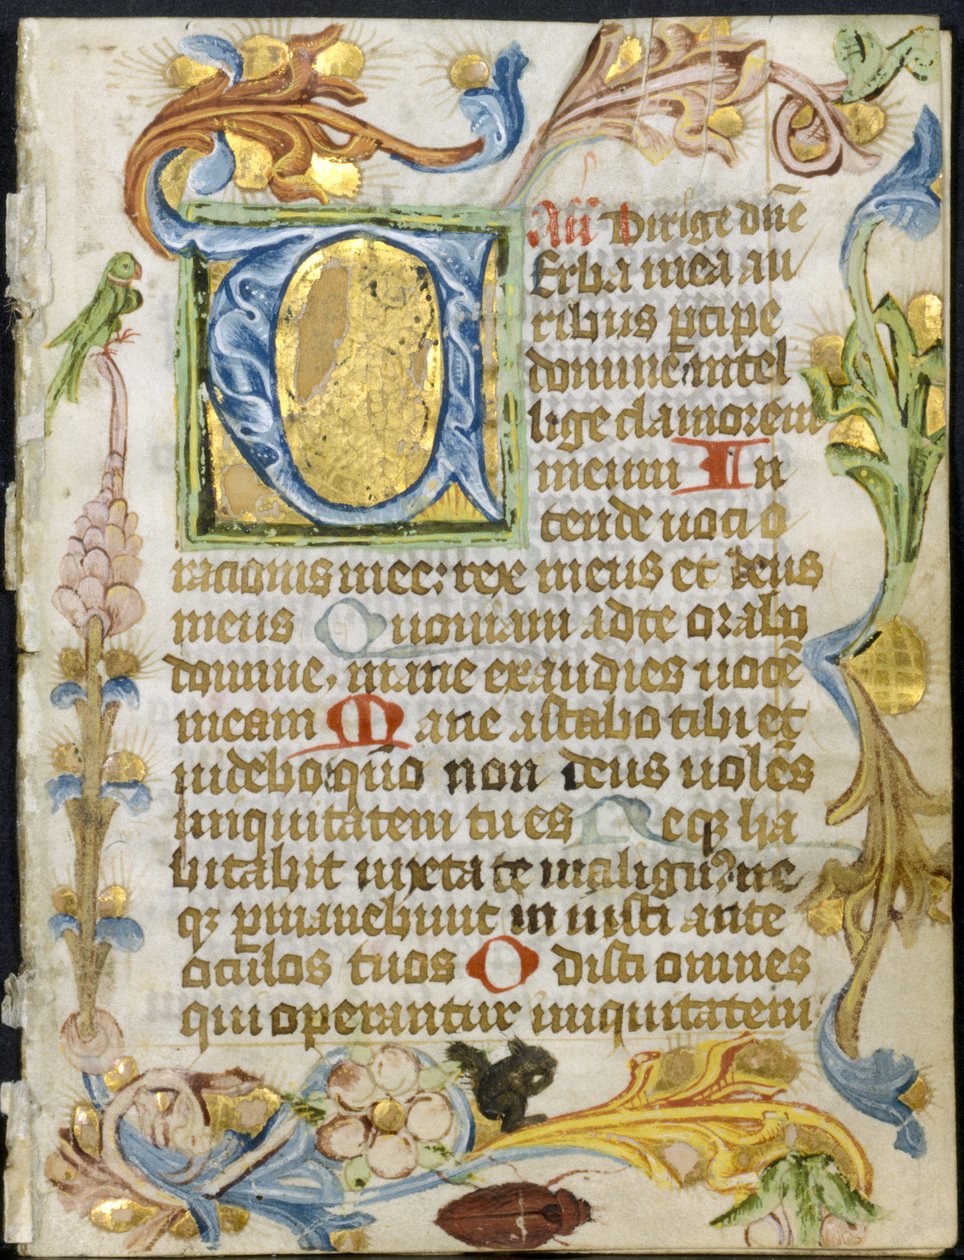 Añ Dirige dñe
VErba mea au
ribus ꝑcipe
domine, intel
lige clamorem
meum In
tende uoci o
racionis mee: rex meus et deus
meus Quoniam ad te orabo
domine, mane exaudies uocē
meam Mane astabo tibi et
uidebo: qño non deus uolēs
iniquitatem tu es Neqꝫ ha
bitabit iuxta te malignꝰ: ne
qꝫ ꝑmanebunt iniusti ante
oculos tuos Odisti omnes
qui operantur iniquitatem